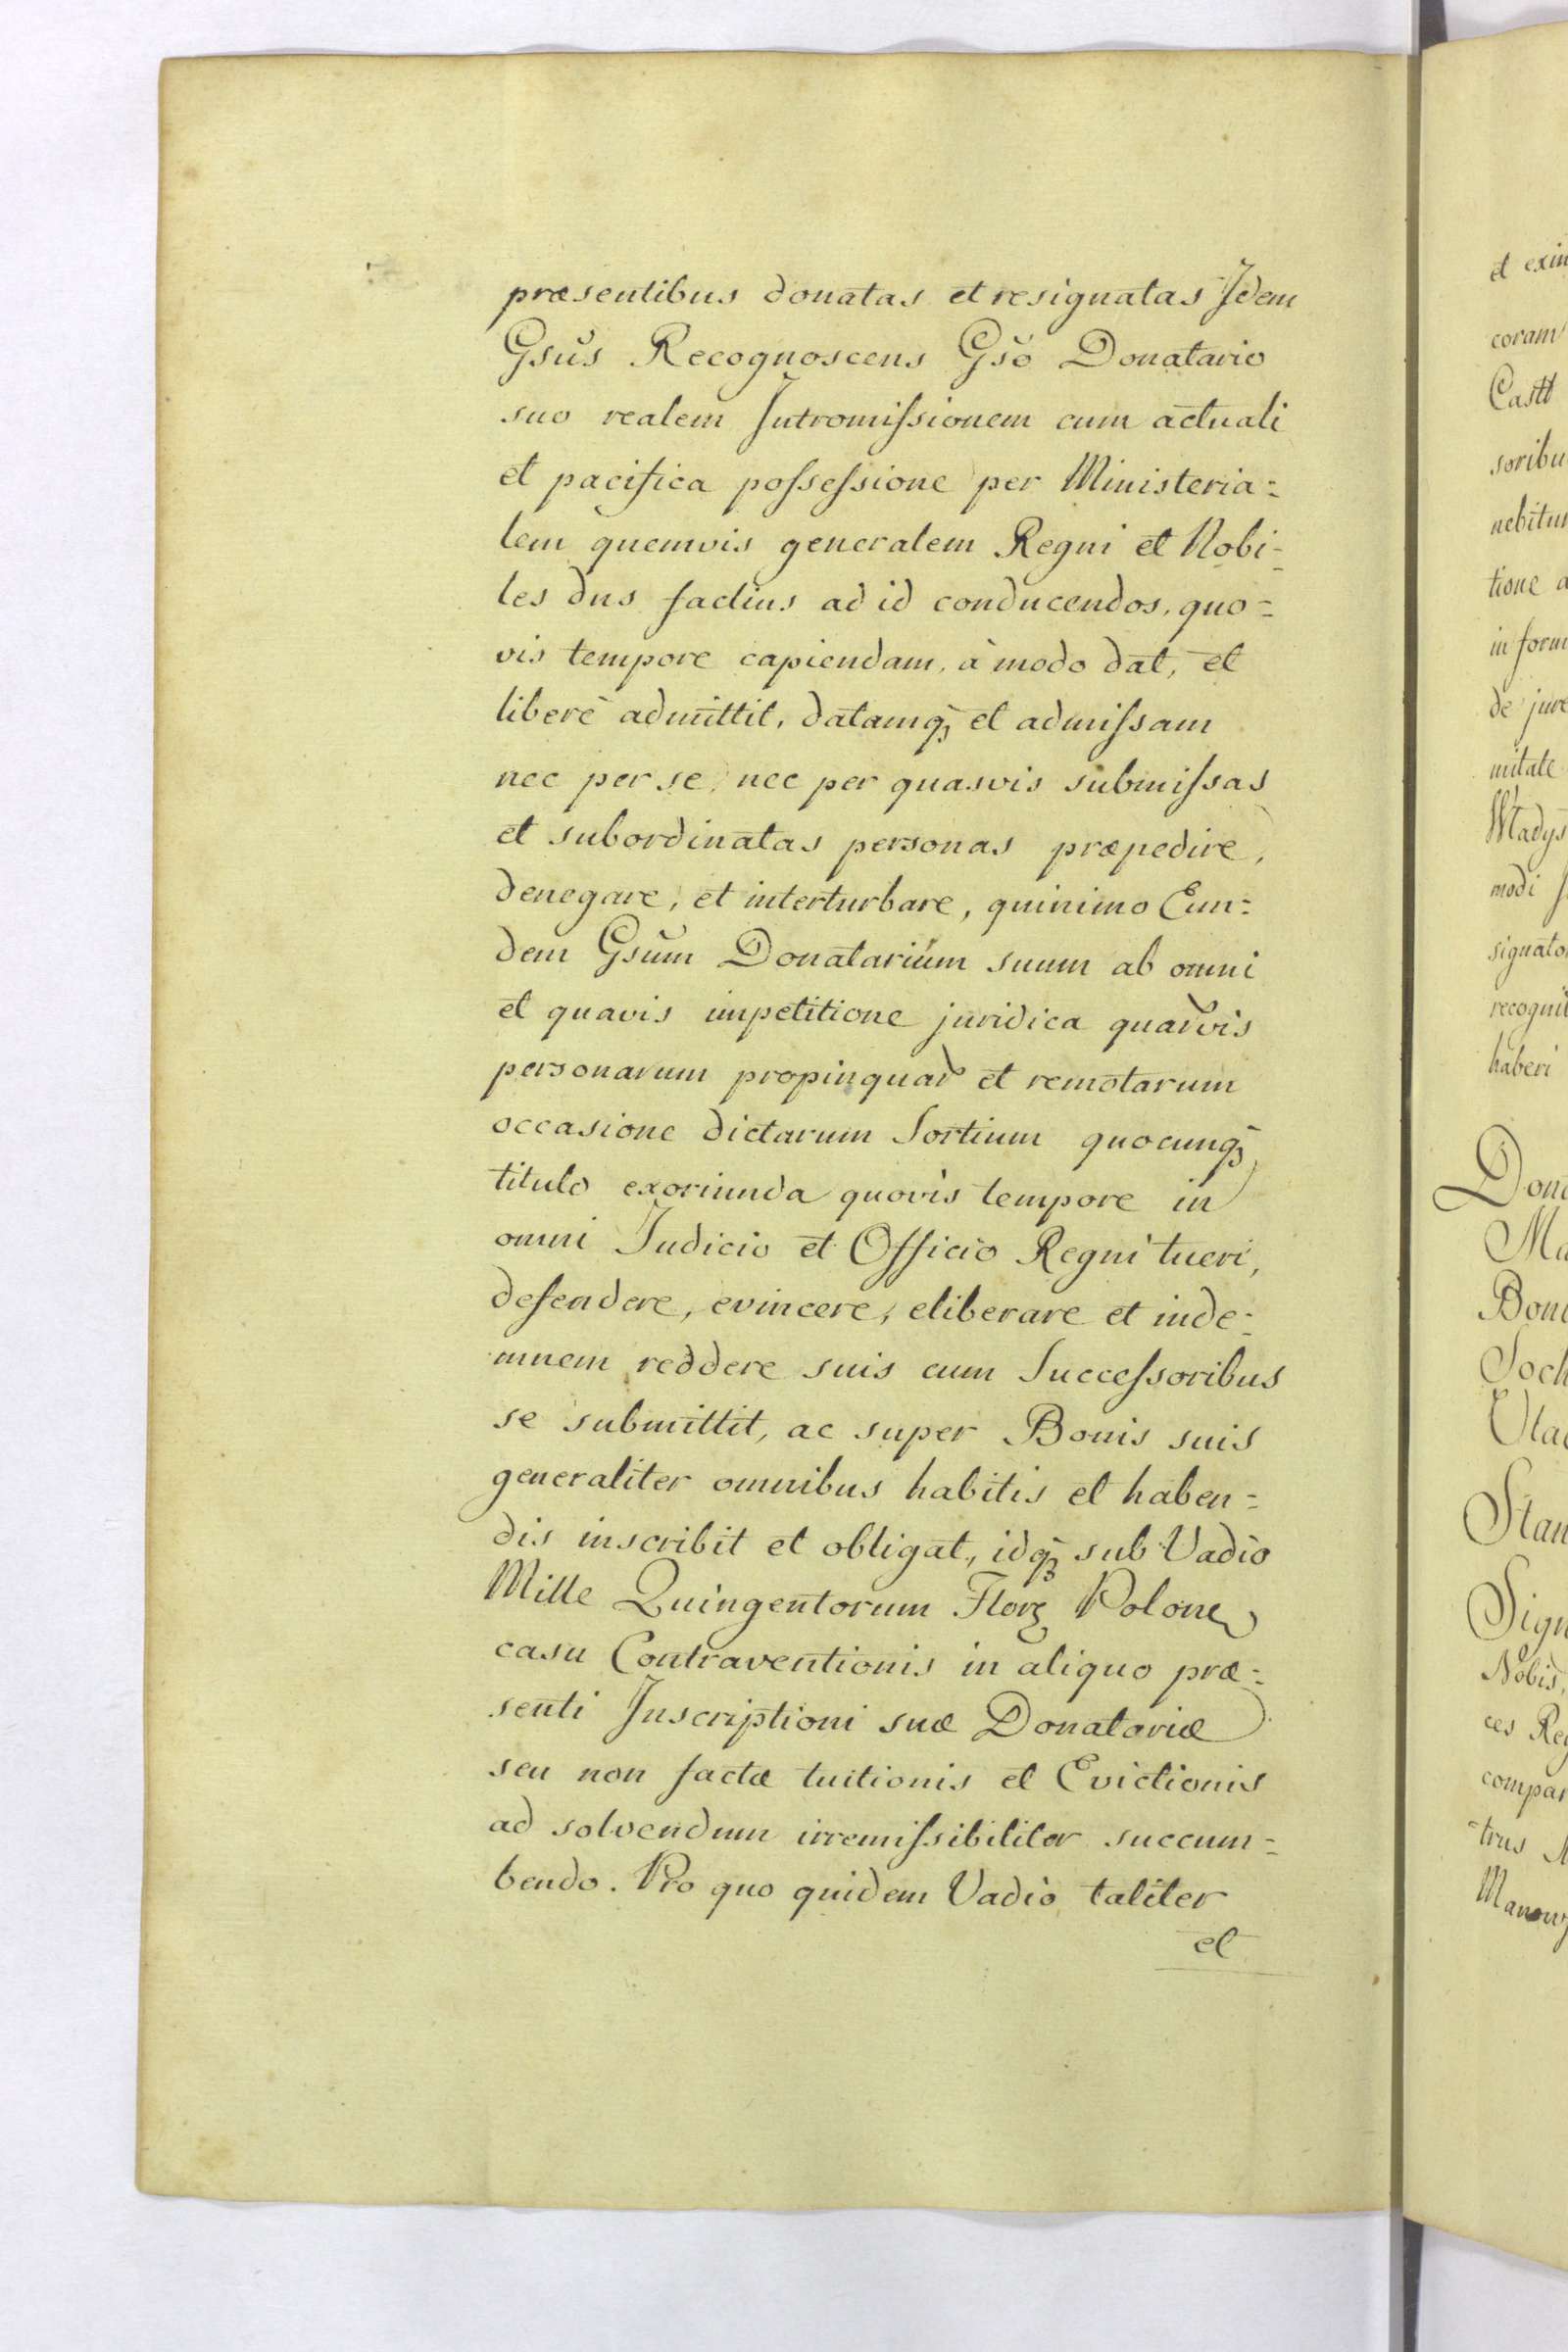 præsentibus donatas et resignatas Idem
Gsus Recognoscens Gso Donatario
suo realem Intromiſsionem cum actuali
et pacifica poſseſsione per Ministeria=
lem quemvis generalem Regni et Nobi=
les dus factius ad id conducendos, quo=
vis tempore capiendam, à modo dat, et
liberè admittit, datamq; et admiſsam
nec per se, nec per quasvis submiſsas
et subordinatas personas præpedire,
denegare, et interturbare, quinimo Eun=
dem Gsum Donatarium suum ab omni
et quavis impetitione juridica quarvis
personarum propinquar et remotarum
occasione dictarum Sortium quocunq;
titulo exoriunda quovis tempore in
omni Judicio et Officio Regni tueri,
defendere, evincere, eliberare et inde=
mnem reddere suis cum Succeſsoribus
se submittit, ac super Bonis suis
generaliter omnibus habitis et haben=
dis inscribit et obligat, idq; sub Vadio
Mille Quingentorum Flor Polone
casu Contraventionis in aliquo præ=
senti Inscriptioni suæ Donatoriæ
seu non factæ tuitionis et Evictionis
ad solvendum irremiſsibiliter succum=
bendo. Pro quo quidem Vadio taliter
et
et exin
coram
Castt
soribu
nebitur
tione a
in form
de jure
mitate
Władys
modi
signato
recognit
haberi
Dona
Ma
Bono
Soch
Uta
Stan
Sign
Nobis,
ces Reg
compar
trus